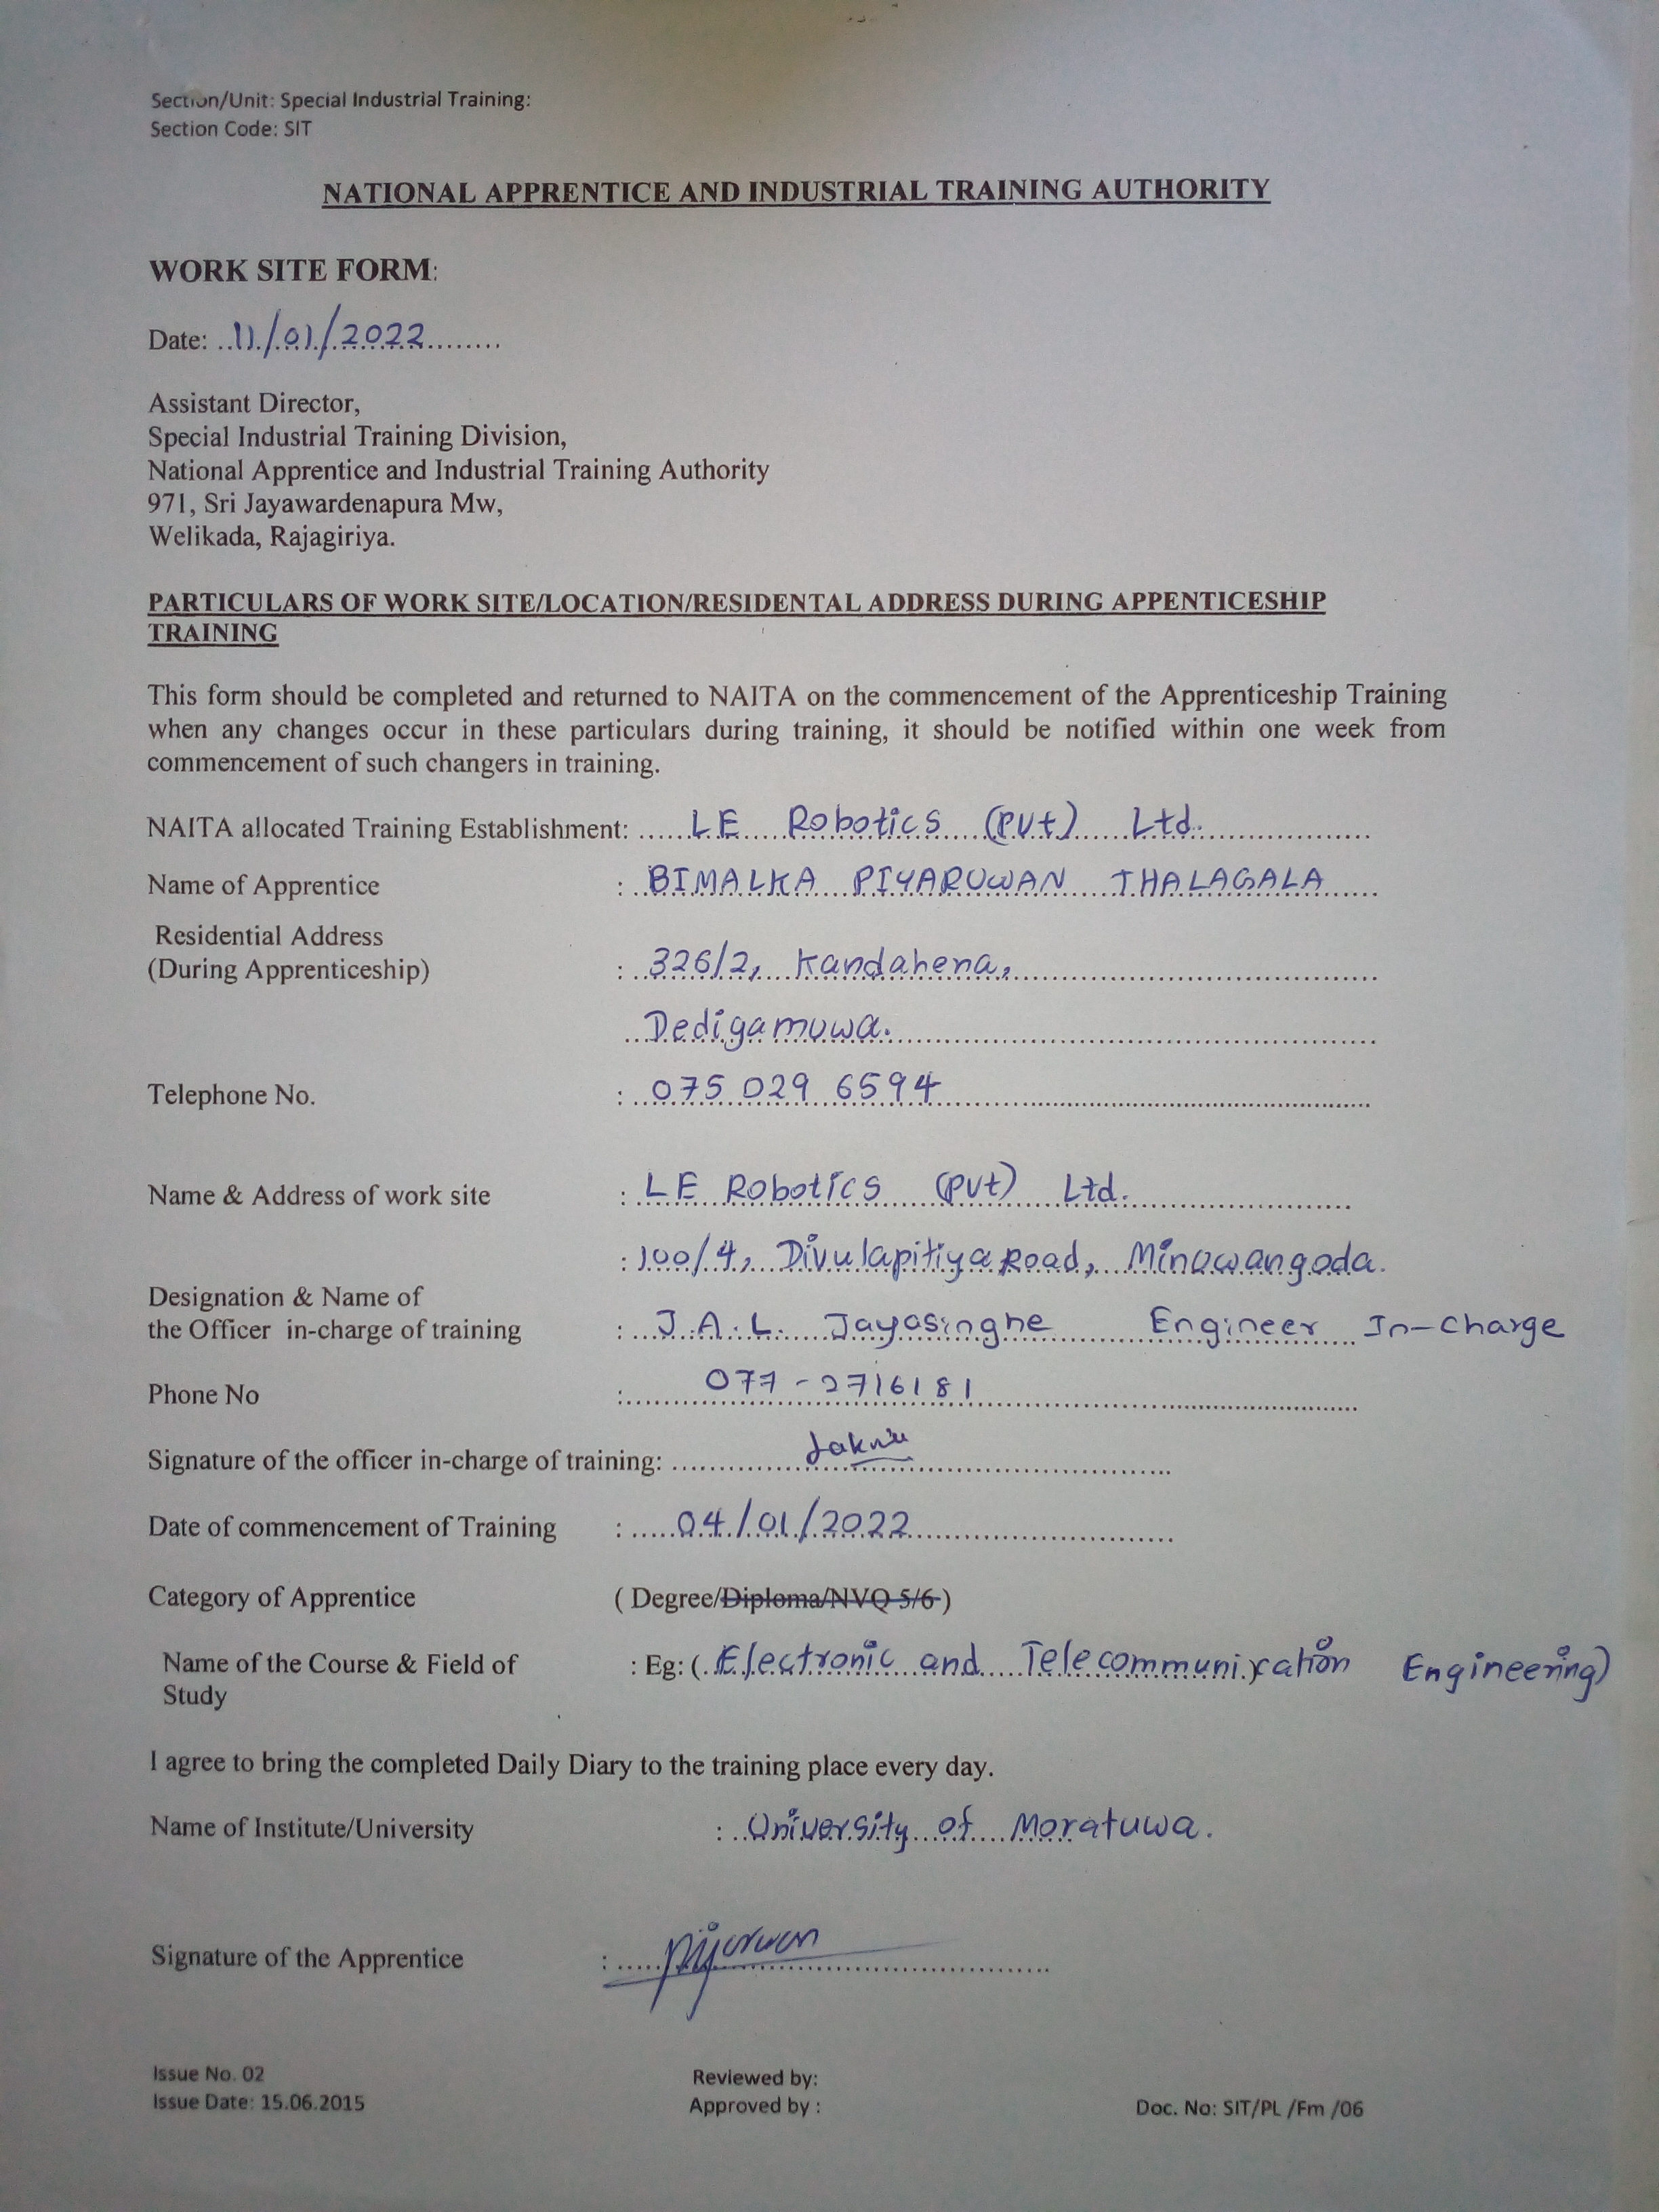 Section/Unit: Special Industrial Training:
Section Code: SIT
NATIONAL APPRENTICE AND INDUSTRIAL TRAINING AUTHORITY
WORK SITE FORM:
Date: 11/01/2022
Assistant Director,
Special Industrial Training Division,
National Apprentice and Industrial Training Authority
971, Sri Jayawardenapura Mw,
Welikada, Rajagiriya.
PARTICULARS OF WORK SITE/LOCATION/RESIDENTAL ADDRESS DURING APPENTICESHIP
TRAINING
This form should be completed and returned to NAITA on the commencement of the Apprenticeship Training
when any changes occur in these particulars during training, it should be notified within one week from
commencement of such changers in training.
NAITA allocated Training Establishment: LE Robotics (Pvt) Ltd.
Name of Apprentice : BIMALKA PIYARUWAN THALAGALA
Residential Address
(During Apprenticeship) : 326/2, Kandahena,
Dedigamuwa.
Telephone No. : 075 029 6594
Name & Address of work site : LE Robotics (Pvt) Ltd.
: 100/4, Divulapitiya Road, Minuwangoda.
Designation & Name of
the Officer in-charge of training : J.A.L. Jayasinghe Engineer In-Charge
Phone No : 077-2716181
Signature of the officer in-charge of training:
Date of commencement of Training : 04/01/2022
Category of Apprentice ( Degree/Diploma/NVQ 5/6 )
Name of the Course & Field of : Eg: ( Electronic and Telecommunication Engineering)
Study
I agree to bring the completed Daily Diary to the training place every day.
Name of Institute/University : University of Moratuwa.
Signature of the Apprentice :
Issue No. 02 Reviewed by:
Issue Date: 15.06.2015 Approved by : Doc. No: SIT/PL /Fm /06